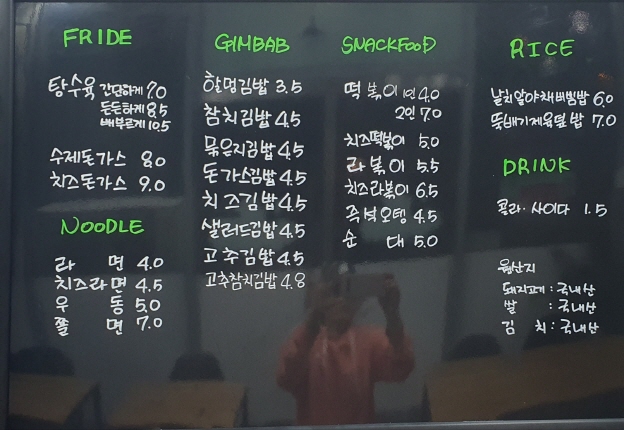 FRIDE
탕수육 간단하게 7.0
든든하게 8.5
배부르게 10.5
수제돈가스 8.0
치즈돈가스 9.0
NOODLE
라 면 4.0
치즈라면 4.5
우 동 5.0
쫄 면 7.0
GIMBAB
할멈김밥 3.5
참치김밥 4.5
묵은지김밥 4.5
돈가스김밥 4.5
치즈김밥 4.5
샐러드김밥 4.5
고추김밥 4.5
고추참치김밥 4.8
SNACKFOOD
떡볶이 1인 4.0
2인 7.0
치즈떡볶이 5.0
라볶이 5.5
치즈라볶이 6.5
즉석오뎅 4.5
순 대 5.0
RICE
날치알야채비빔밥 6.0
뚝배기제육덮밥 7.0
DRINK
콜라·사이다 1.5
원산지
돼지고기 : 국내산
쌀 : 국내산
김 치 : 국내산